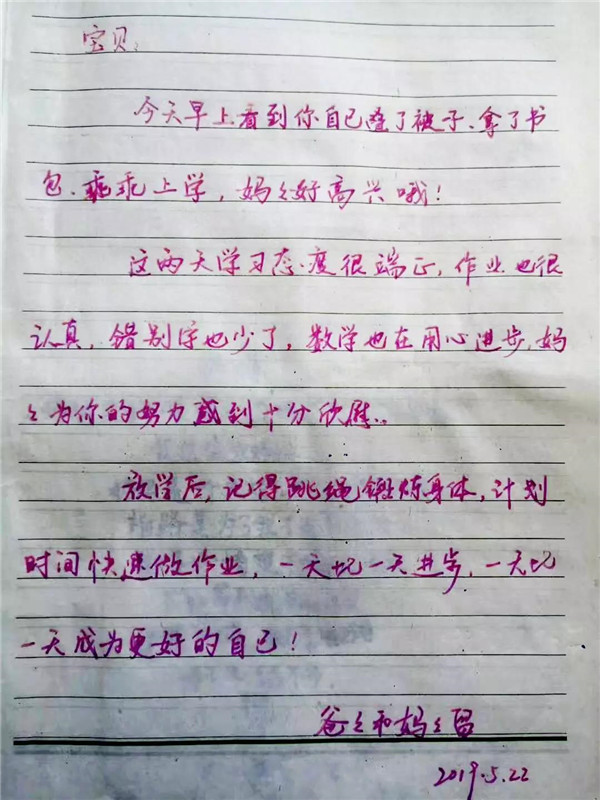 宝贝:
今天早上看到你自己叠了被子、拿了书
包、乖乖上学，妈々好高兴哦！
这两天学习态度很端正，作业也很
认真，错别字也少了，数学也在用心进步，妈
々为你的努力感到十分欣慰..
放学后，记得跳绳锻炼身体，计划
时间快速做作业，一天比一天进步，一天比
一天成为更好的自己！
爸々和妈々留
2019.5.22